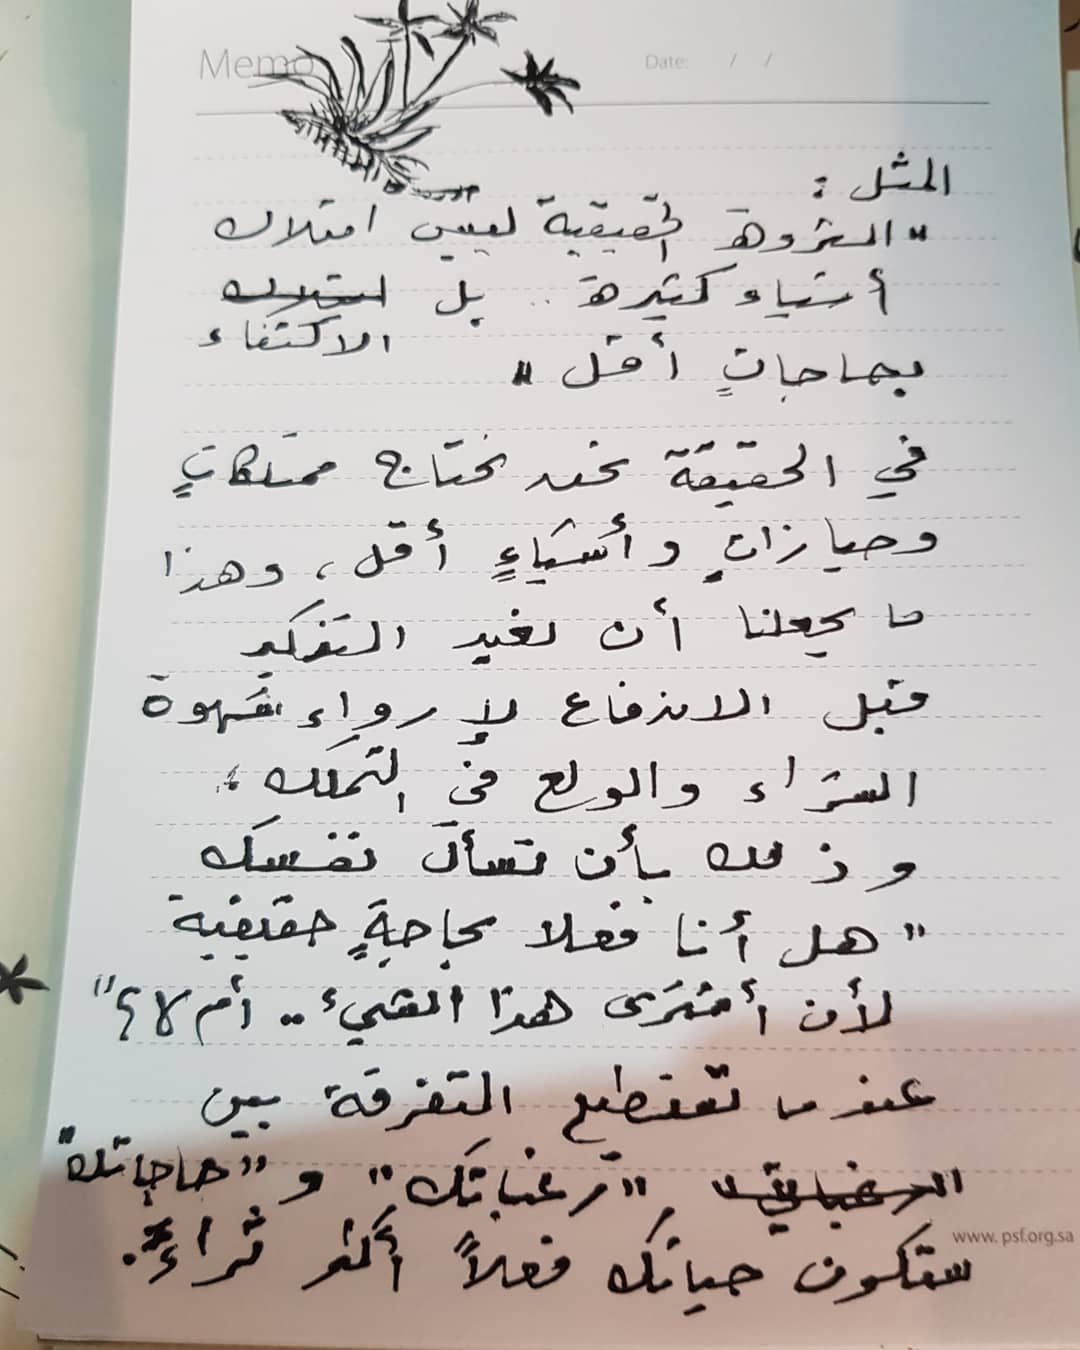 Memo
Date: / /
المثل :
" الثروة الحقيقية ليس امتلاك
أشياء كثيرة .. بل امتلاك
الاكتفاء
بحاجاتٍ أقل "
في الحقيقة نحن نحتاج ممتلكاتٍ
وحيازاتٍ وأشياءٍ أقل ، وهذا
ما يجعلنا أن نعيد التفكير
قبل الاندفاع لإرواء شهوة
الشراء والولع في التملك ؛
وذلك بأن تسأل نفسك
" هل أنا فعلا بحاجةٍ حقيقية
لأن أشترى هذا الشيء .. أم لا ؟ "
عندما تستطيع التفرقة بين
"رغباتك" و "حاجاتك"
ستكون حياتك فعلاً أكثر ثراءً.
www.psf.org.sa